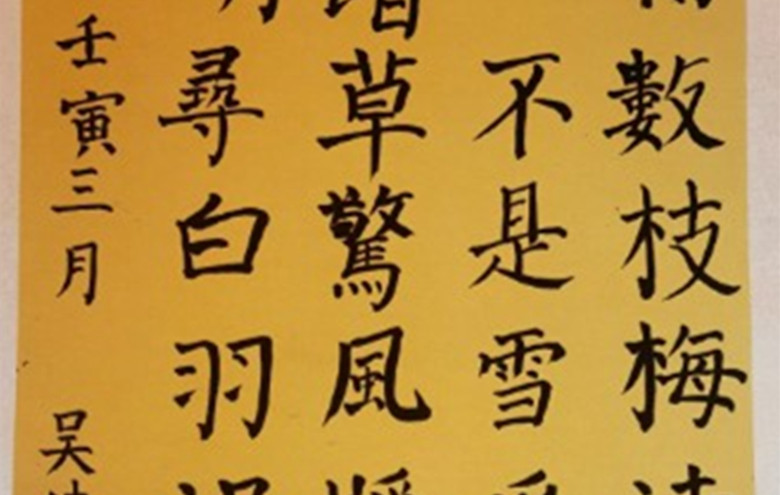 數枝梅
不是雪
草驚風
尋白羽
壬寅三月 吳